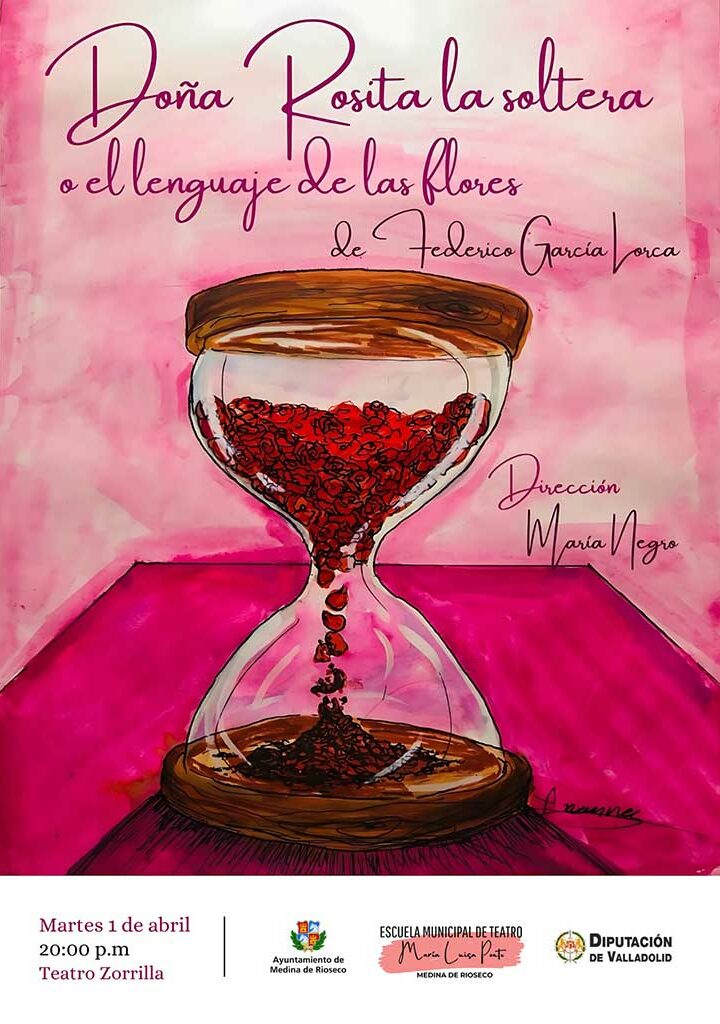 Doña Rosita la soltera
o el lenguaje de las flores
de Federico García Lorca
Dirección
María Negro
Martes 1 de abril
20:00 p.m
Teatro Zorrilla
Ayuntamiento de
Medina de Rioseco
ESCUELA MUNICIPAL DE TEATRO
María Luisa Ponte
MEDINA DE RIOSECO
DIPUTACIÓN
DE VALLADOLID